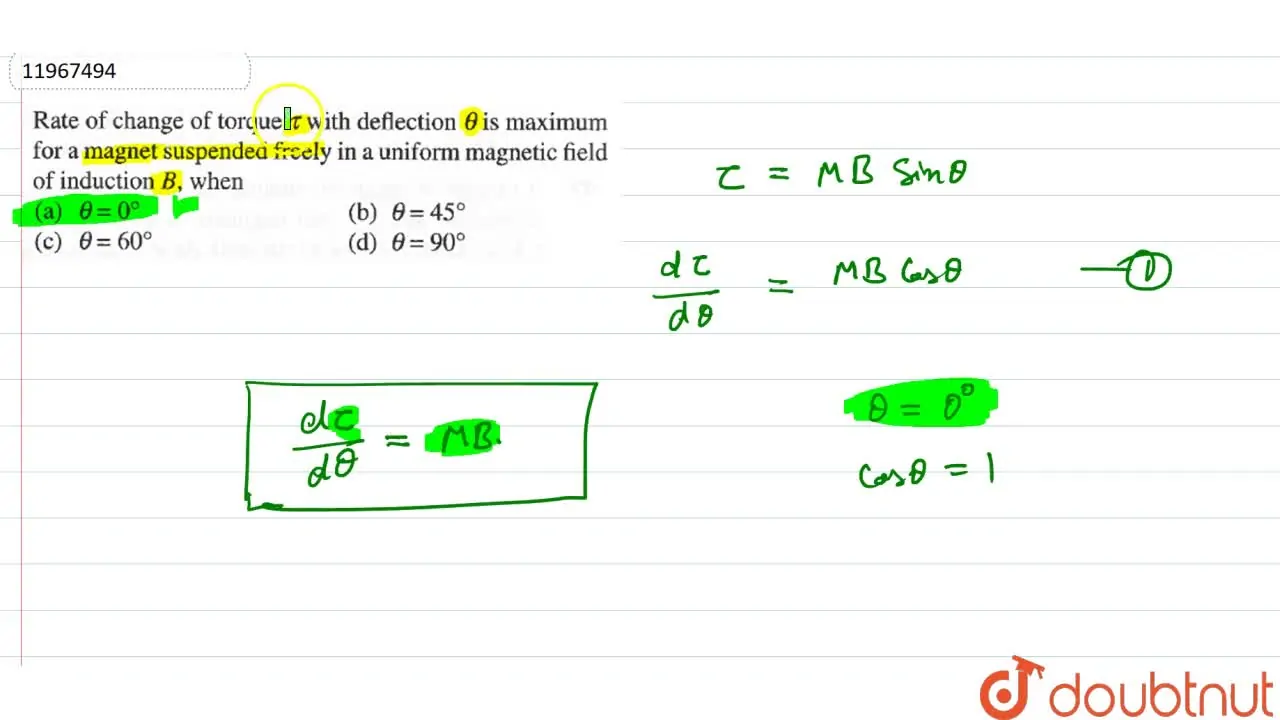 11967494
Rate of change of torque τ with deflection θ is maximum
for a magnet suspended freely in a uniform magnetic field
of induction B, when
(a) θ = 0° (b) θ = 45°
(c) θ = 60° (d) θ = 90°
τ = MB Sinθ
dτ/dθ = MB Cosθ — ①
θ = 0°
Cosθ = 1
dτ/dθ = MB.
doubtnut